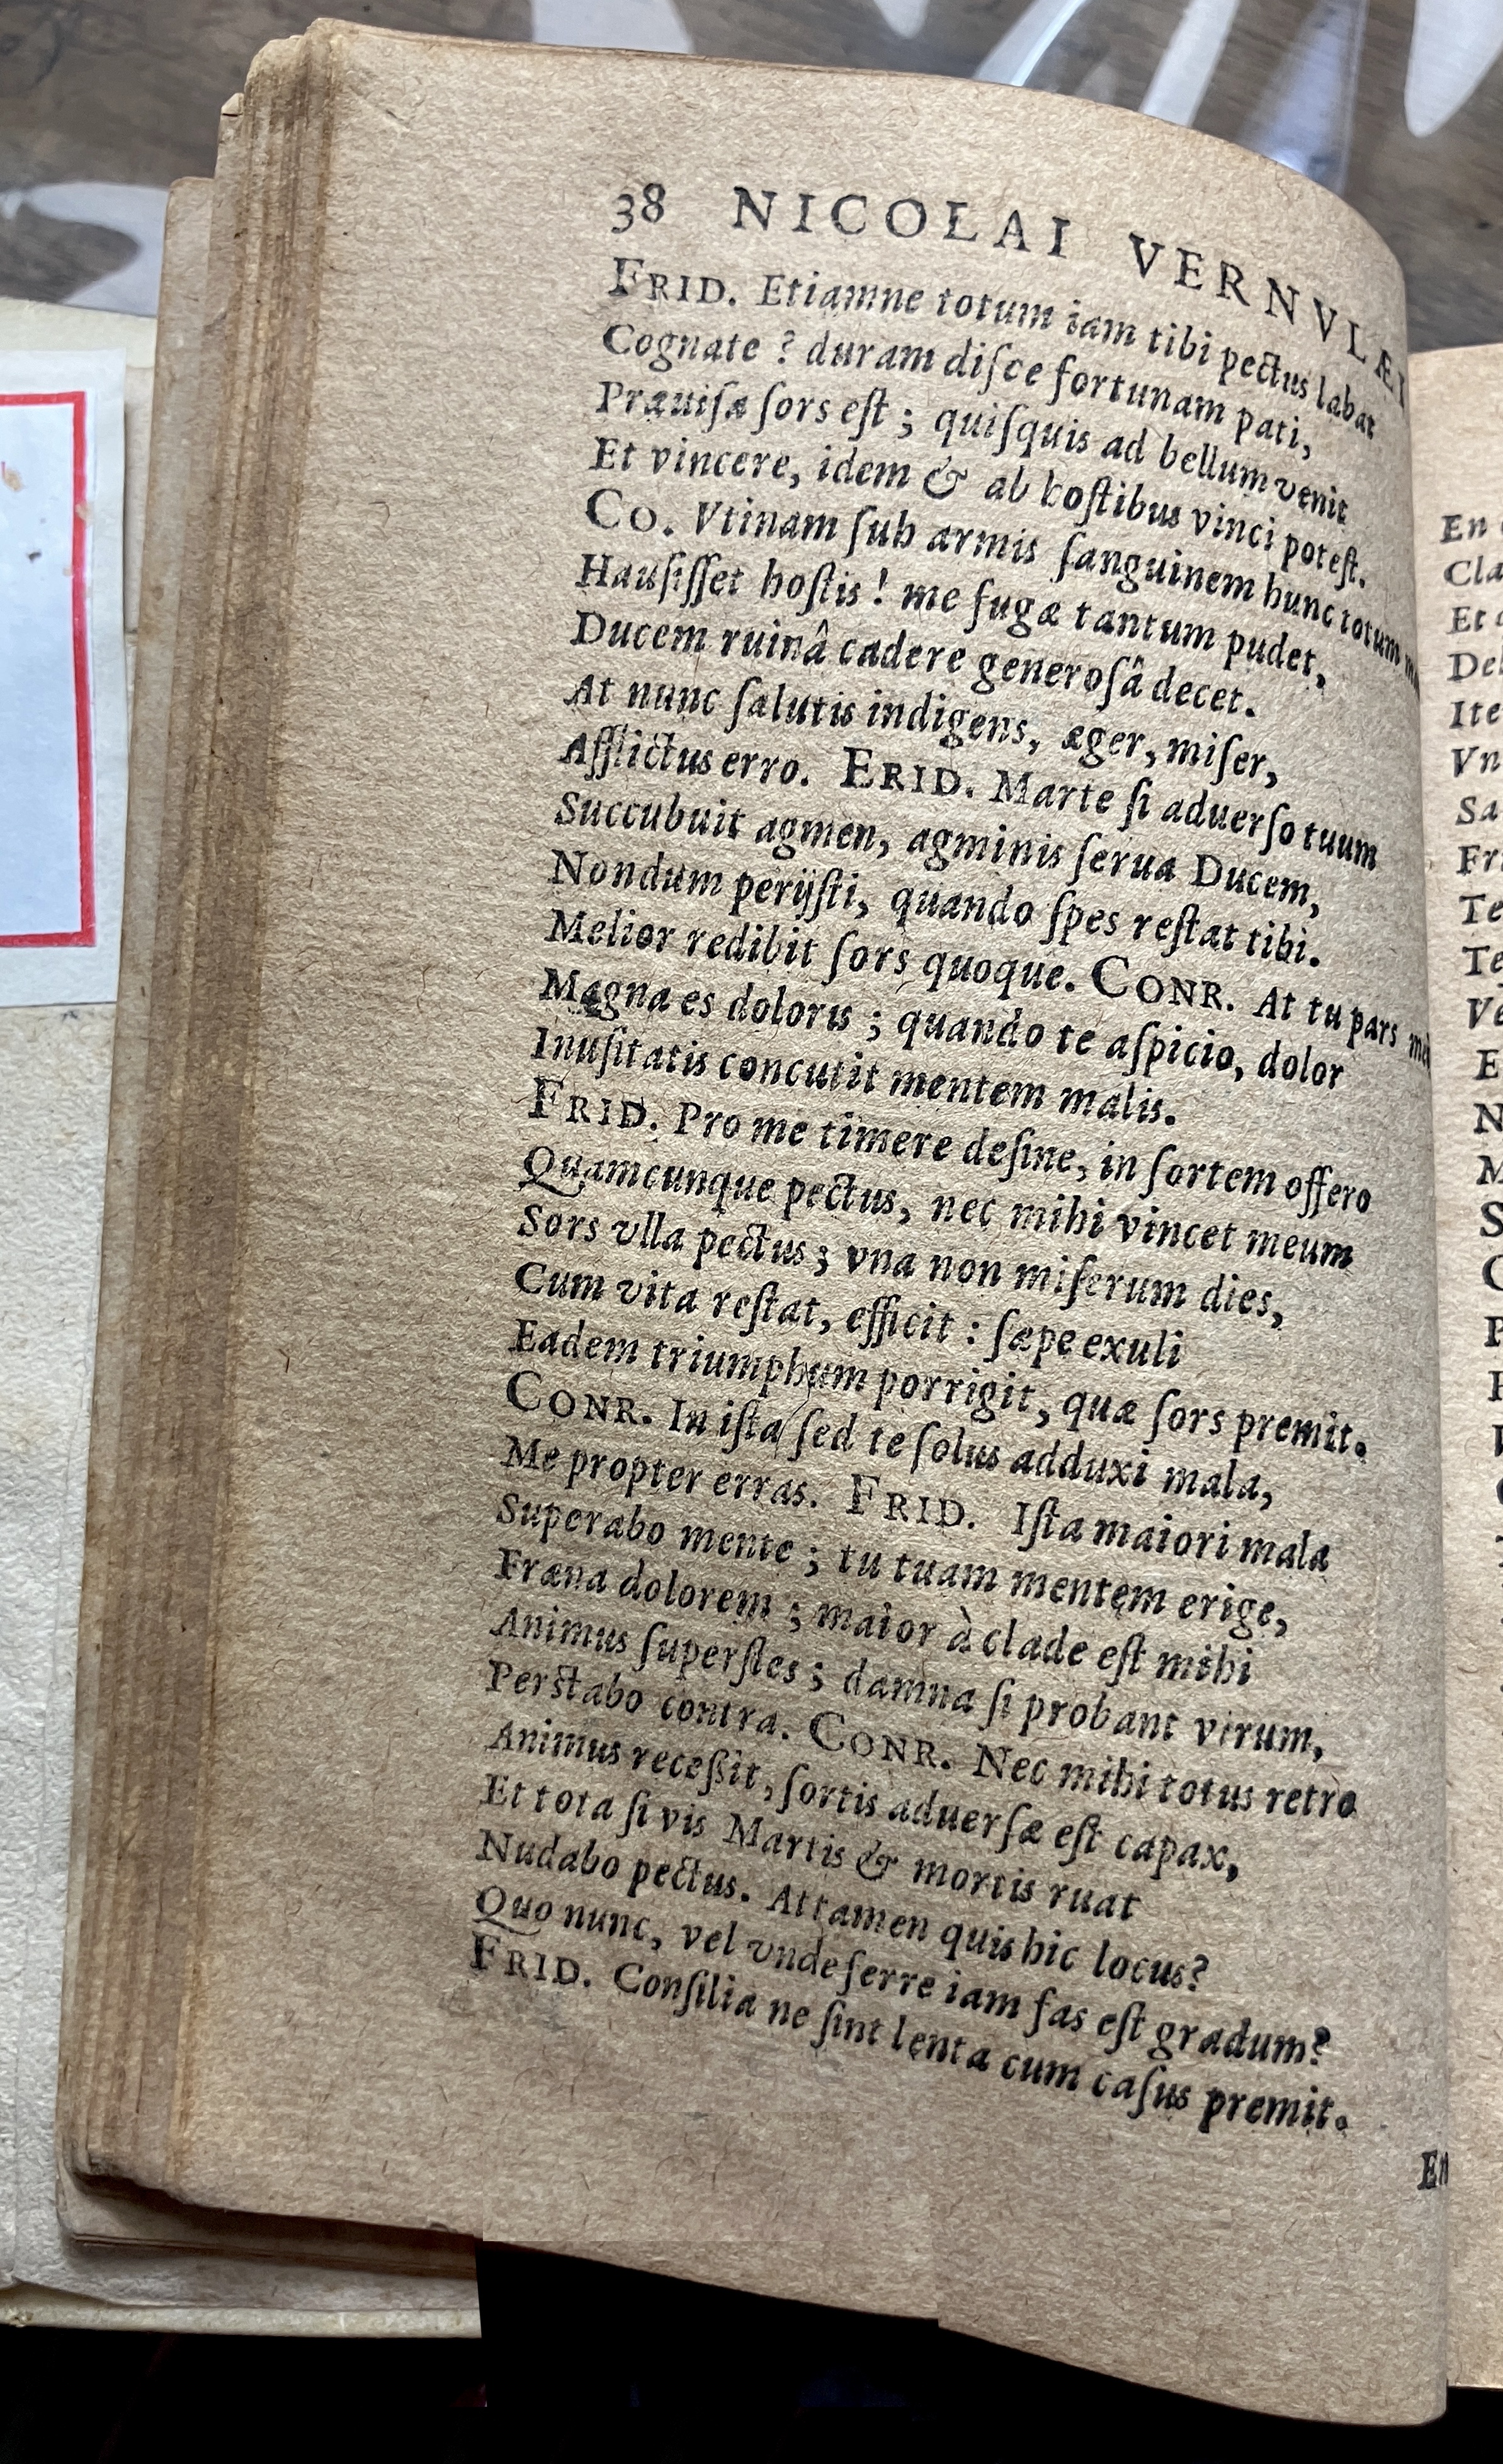 38 NICOLAI VERNVLÆI
FRID. Etiamne totum iam tibi pectus labat
Cognate ? duram diſce fortunam pati,
Præuiſa ſors eſt ; quiſquis ad bellum venit
Et vincere, idem & ab hoſtibus vinci poteſt.
CO. Vtinam ſub armis ſanguinem hunc totum
Hauſiſſet hoſtis ! me fugæ tantum pudet,
Ducem ruinâ cadere generoſâ decet.
At nunc ſalutis indigens, æger, miſer,
Afflictus erro. ERID. Marte ſi aduerſo tuum
Succubuit agmen, agminis ſerua Ducem,
Nondum perijſti, quando ſpes reſtat tibi.
Melior redibit ſors quoque. CONR. At tu pars
Magna es doloris ; quando te aſpicio, dolor
Inuſitatis concutit mentem malis.
FRID. Pro me timere deſine, in ſortem offero
Quamcunque pectus, nec mihi vincet meum
Sors vlla pectus ; vna non miſerum dies,
Cum vita reſtat, efficit : ſæpe exuli
Eadem triumphum porrigit, quæ ſors premit.
CONR. In iſta ſed te ſolus adduxi mala,
Me propter erras. FRID. Iſta maiori mala
Superabo mente ; tu tuam mentem erige,
Fræna dolorem ; maior à clade eſt mihi
Animus ſuperſtes ; damna ſi probant virum,
Perstabo contra. CONR. Nec mihi totus retro
Animus receßit, ſortis aduerſæ eſt capax,
Et tota ſi vis Martis & mortis ruat
Nudabo pectus. Attamen quis hic locus?
Quo nunc, vel vnde ferre iam fas eſt gradum?
FRID. Conſilia ne ſint lenta cum caſus premit.
En
En
Cla
Et
Del
Ite
Vn
Sa
Fr
Te
Te
Ve
E
N
M
S